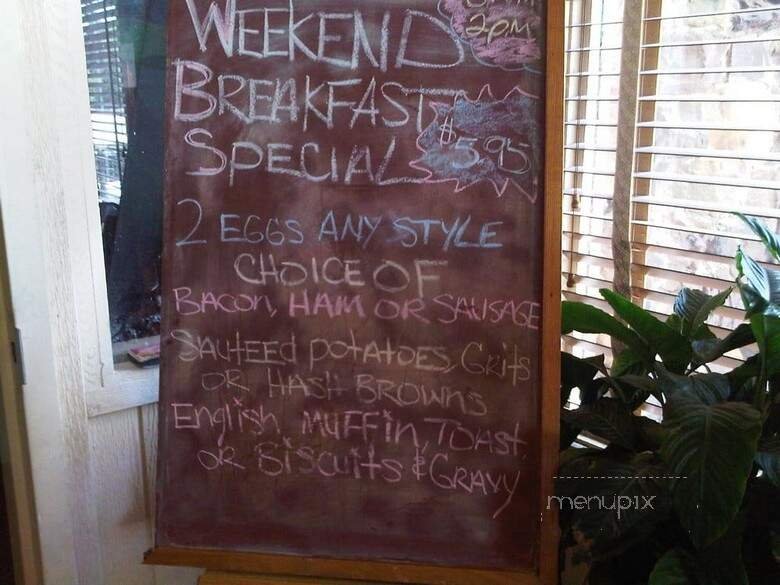 2PM
WEEKEND
BREAKFAST
SPECIAL $5.95
2 EGGS ANY STYLE
CHOICE OF
BACON, HAM OR SAUSAGE
SAUTEED POTATOES, GRITS
OR HASH BROWNS
ENGLISH MUFFIN, TOAST
OR BISCUITS & GRAVY
menupix